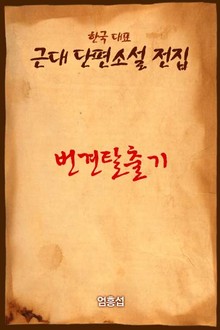 한국 대표
근대 단편소설 전집
번견탈출기
엄흥섭